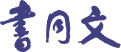 書同文